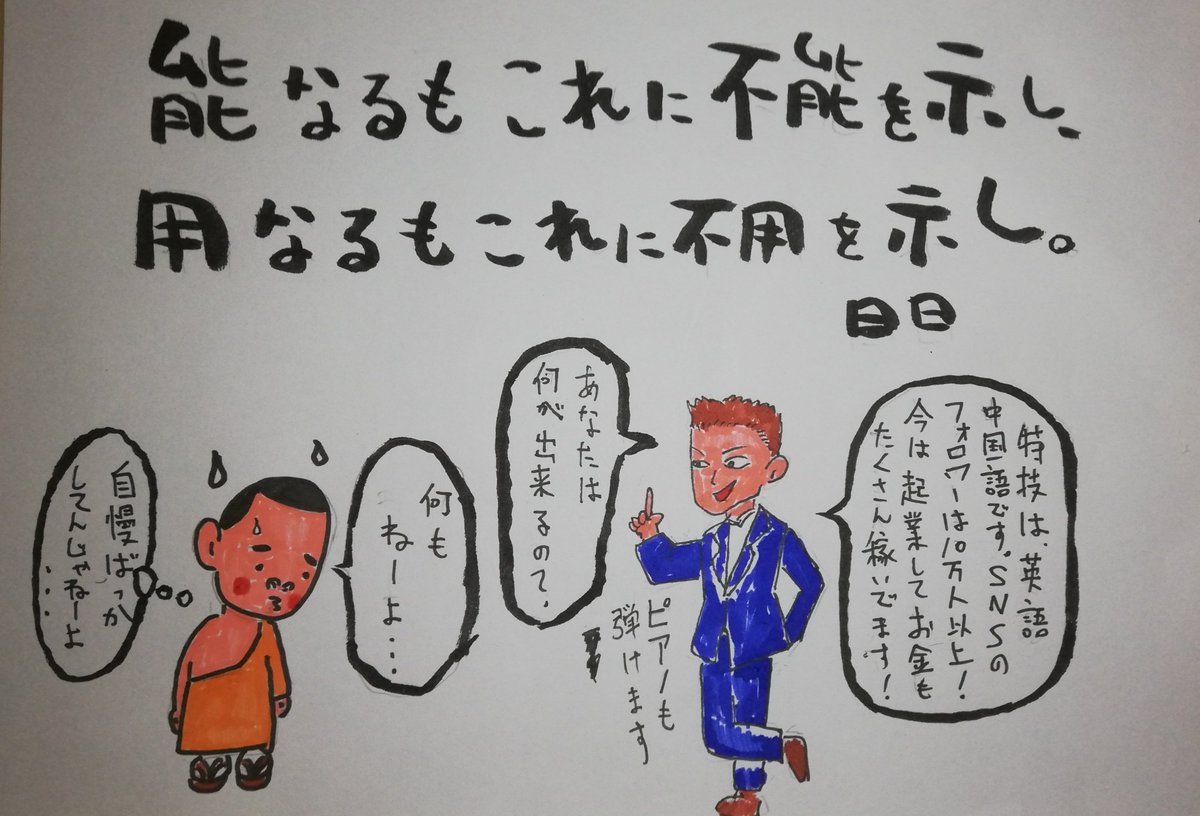 能なるもこれに不能を示し、
用なるもこれに不用を示し。
日日
特技は、英語
中国語です。SNSの
フォロワーは10万人以上!
今は起業してお金も
たくさん稼いでます!
あなたは
何が出来るの?
ピアノも
弾けます
何も
ねーよ…
自慢ばっか
してんじゃねーよ
…